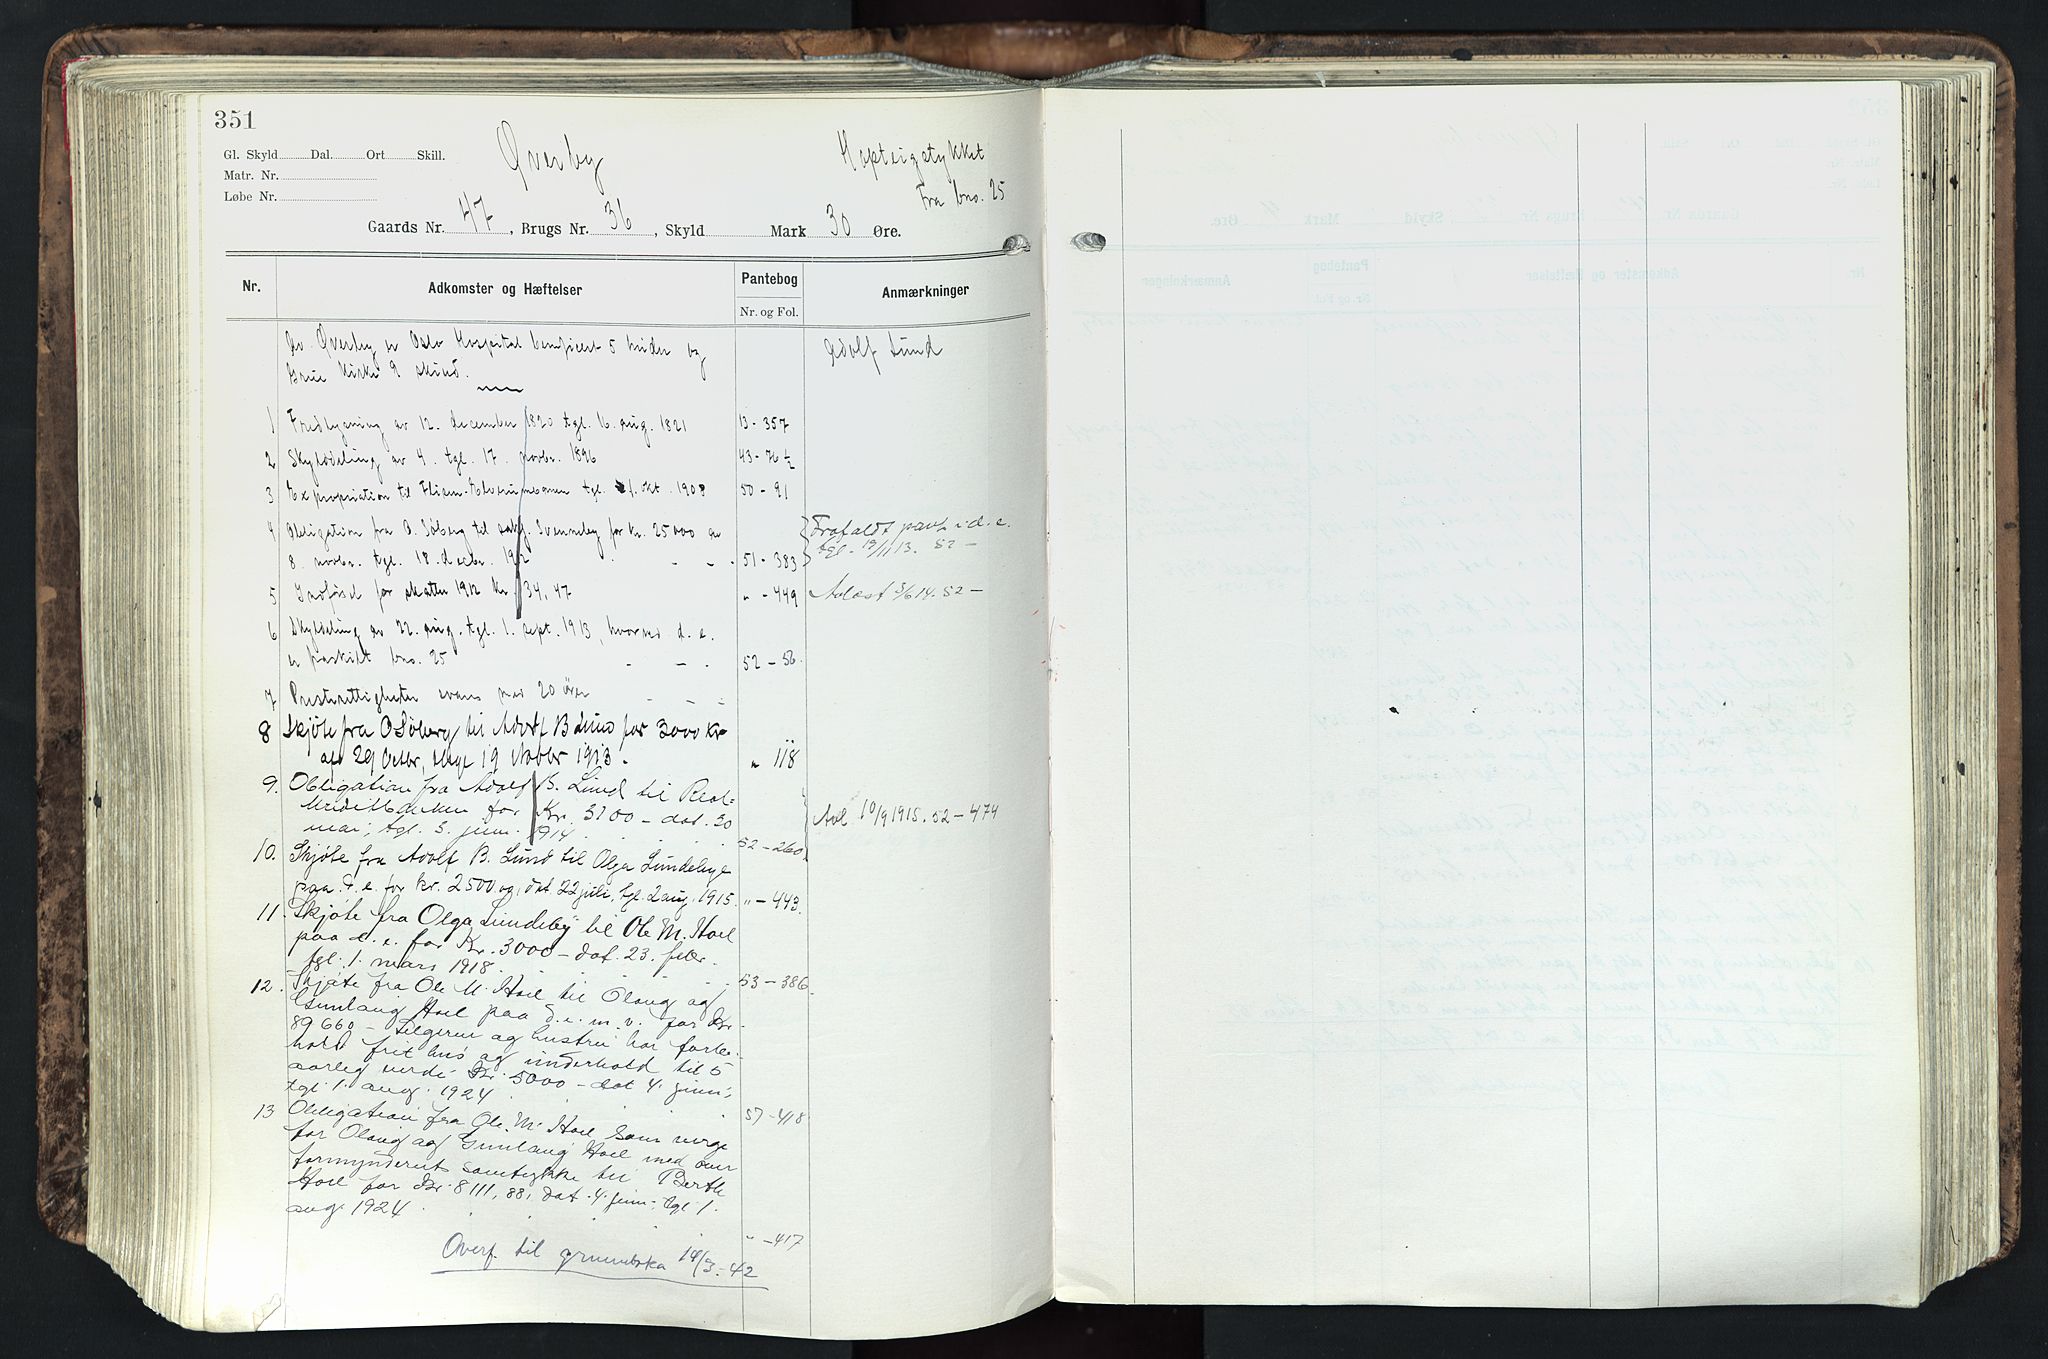 351
Gl. Skyld Dal. Ort Skill.
Matr. Nr.
Løbe Nr.
Øverby
Fra bno. 25
Gaards Nr. 47, Brugs Nr. 36, Skyld Mark 30 Øre.
Nr. Adkomster og Hæftelser Pantebog Anmærkninger
Nr. og Fol.
Av Øverby er Oslo Hospital beneficert 5 huder og Adolf Lund
Grue kirke 9 skind.
1 Fredlysning av 12. december 1820 tgl. 16. aug. 1821 13-357
2 Skylddeling av 4. tgl. 17. novbr. 1896 43-76½
3 Expropriation til Flisen-Elverumbanen tgl. 1. okt. 1908 50-91
4 Obligation fra O. Søberg til sakf. Svenneby for kr. 25000 av Frafaldt pant i d. e.
8. novbr. tgl. 18. decbr. 1912 51-383 tgl. 19/11 13. 52-
5 Indførsel for skatter 1912 kr. 34,47 " - 449 Avlæst 5/6 14. 52-
6 Skylddeling av 22. aug. tgl. 1. sept. 1913, hvorved d. e.
er fraskilt bno. 25 52-56
7 Presterettigheter svares med 20 øre "
8 Skjøte fra O Søberg til Adolf B Lund for 3000 kr
af 29 Octbr, thlgt 19 Novbr 1913. " 118
9. Obligation fra Adolf B. Lund til Real-
kreditbanken for Kr. 3700 - dat. 30 Avl 10/9 1915. 52-474
mai, tgl. 5. juni. 1914. 52-260
10. Skjøte fra Adolf B. Lund til Olga Lundeby
paa d. e. for kr. 2500 og, dat 22 juli, tgl. 2 aug. 1915. " - 443.
11. Skjøte fra Olga Lundeby til Ole M. Hoel
paa d. e. for Kr. 3000 - dat. 23. febr.
tgl. 1. mars 1918. 53-386
12. Skjøte fra Ole M. Hoel til Olaug og
Gunlaug Hoel paa d. e. m. v. for Kr.
89660 - Selgeren og hustru har forbe-
hold frit hus og underhold til 5
aarlig verdi Kr. 5000 - dat 4. juni,
tgl. 1. aug. 1924 57-418
13 Obligation fra Ole M. Hoel som verge
for Olaug og Gunlaug Hoel med over
formynderiets samtykke til Berthe
Hoel for Kr. 8111,88, dat. 4. juni, tgl 1.
aug. 1924. " - 417
Overf. til grunnboka 14/3-42